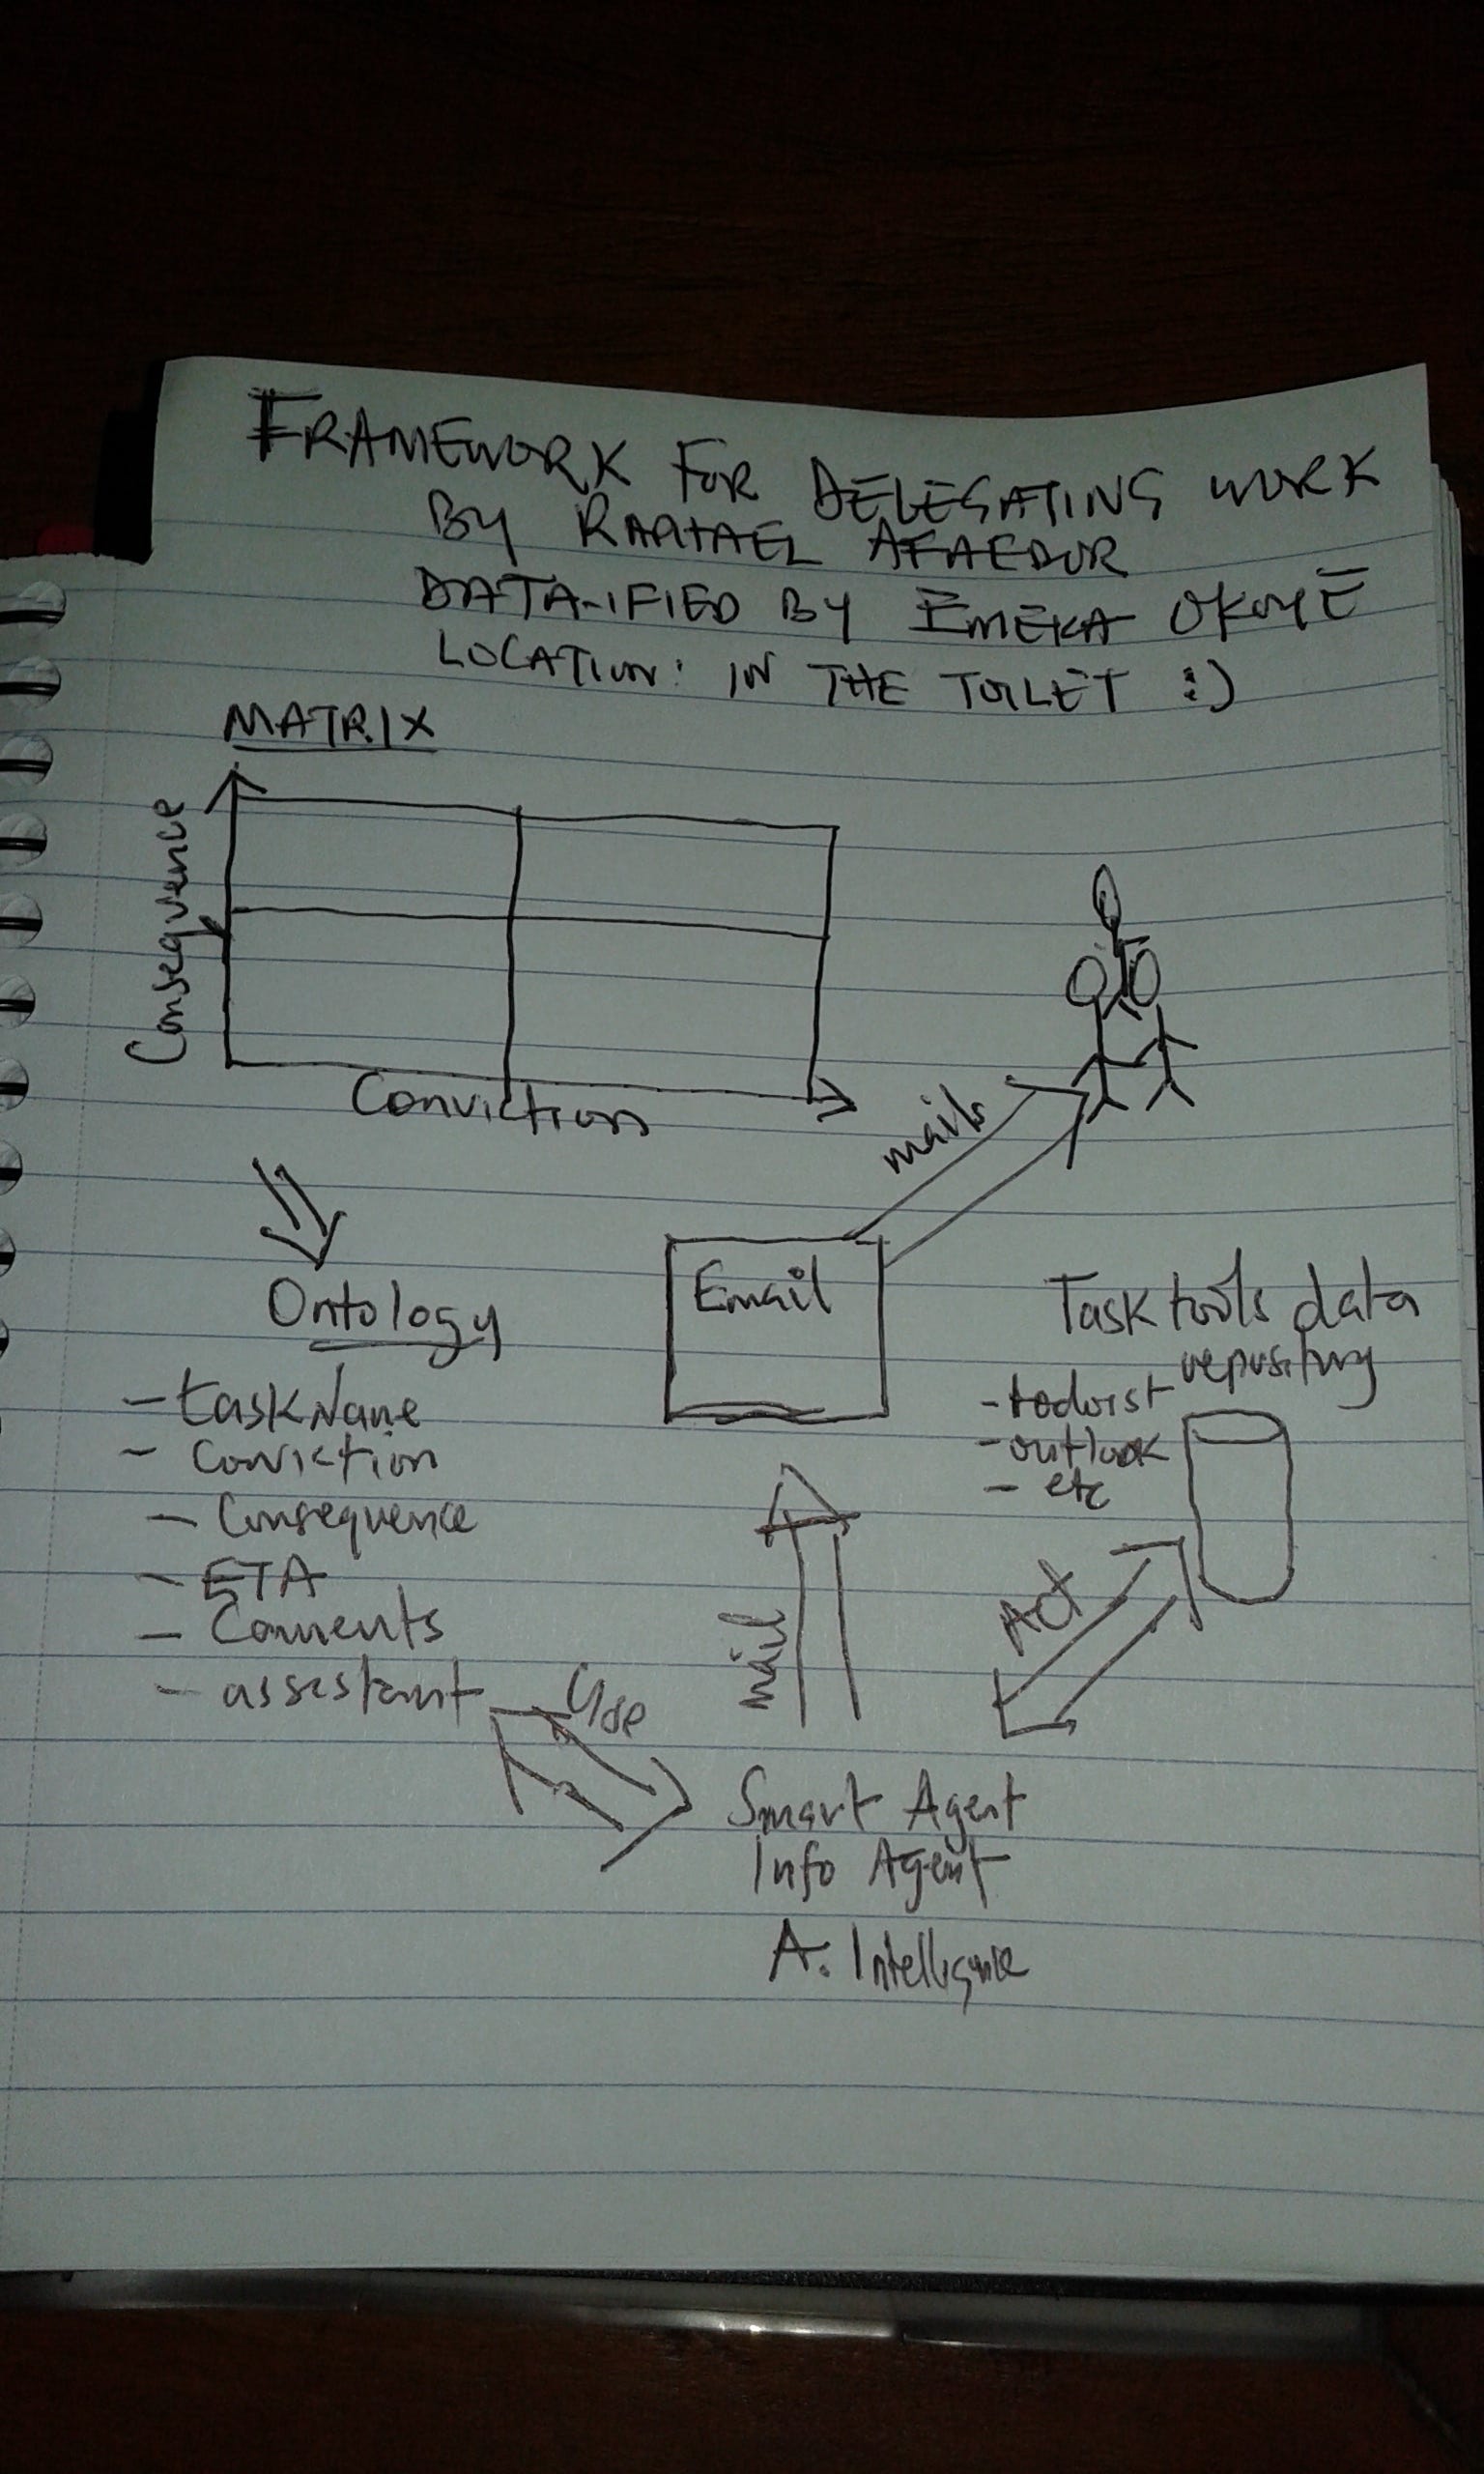 FRAMEWORK FOR DELEGATING WORK
BY RAPHAEL AFAEDOR
DATA-IFIED BY EMEKA OKOYE
LOCATION: IN THE TOILET :)
MATRIX
Consequence
Conviction
mails
Ontology
- taskName
- Conviction
- Consequence
- ETA
- Comments
- assistant
Use
Email
mail
Task tools data
repository
- todoist
- outlook
- etc
Act
Smart Agent
Info Agent
A. Intelligence